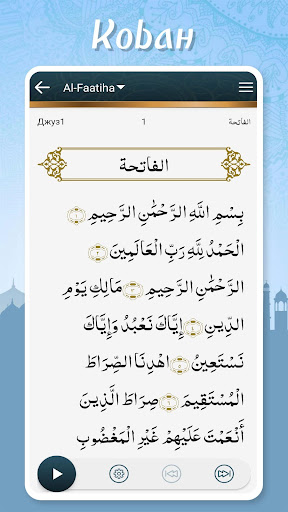 Коѣан
Al-Faatiha
Джуз1 1 الفاتحة
الفاتحة
بِسْمِ اللَّهِ الرَّحْمَٰنِ الرَّحِيمِ ١
الْحَمْدُ لِلَّهِ رَبِّ الْعَالَمِينَ ٢
الرَّحْمَٰنِ الرَّحِيمِ ٣ مَالِكِ يَوْمِ
الدِّينِ ٤ إِيَّاكَ نَعْبُدُ وَإِيَّاكَ
نَسْتَعِينُ ٥ اهْدِنَا الصِّرَاطَ
الْمُسْتَقِيمَ ٦ صِرَاطَ الَّذِينَ
أَنْعَمْتَ عَلَيْهِمْ غَيْرِ الْمَغْضُوبِ